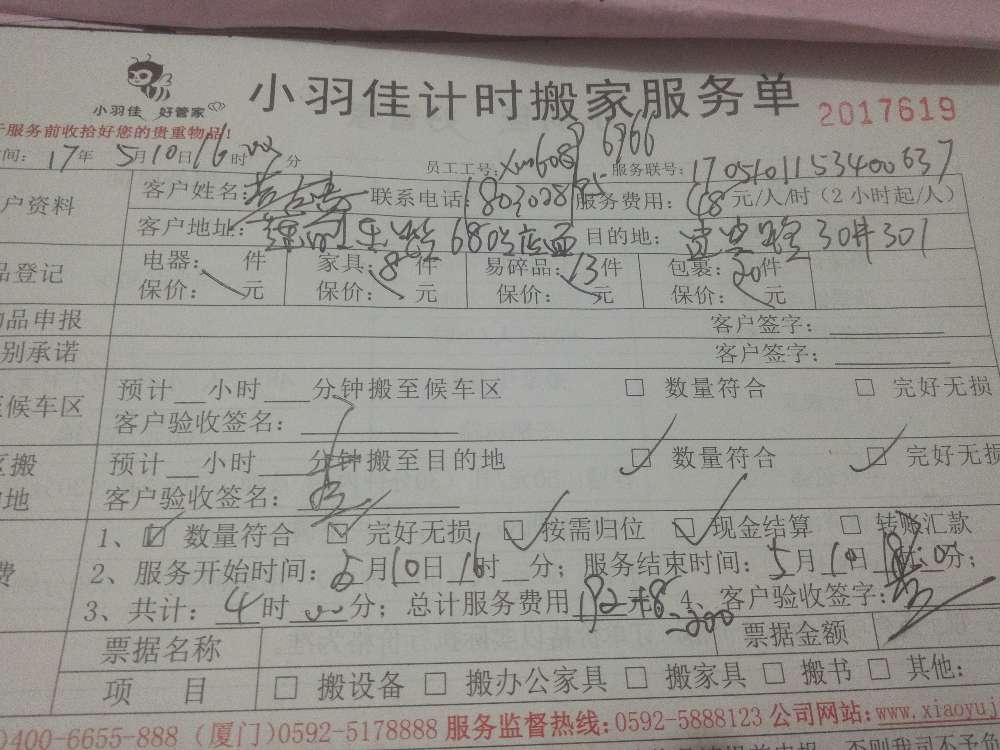 小羽佳 好管家
小羽佳计时搬家服务单
2017619
服务前收拾好您的贵重物品！
间：17年5月10日16时00分 员工工号： 6966 服务联号：1705101153400637
户资料 客户姓名： 联系电话： 服务费用：48元/人/时（2小时起/人）
客户地址： 680 目的地： 30井301
品登记 电器： 件 家具：8件 易碎品：13件 包裹：20件
保价： 元 保价： 元 保价： 元 保价： 元
物品申报 客户签字：
别承诺 客户签字：
至候车区 预计 小时 分钟搬至候车区 □ 数量符合 □ 完好无损
客户验收签名：
区搬 预计 小时 分钟搬至目的地 ☑ 数量符合 ☑ 完好无损
的地 客户验收签名：
1、☑ 数量符合 ☑ 完好无损 ☑ 按需归位 ☑ 现金结算 □ 转账汇款
费 2、服务开始时间：5月10日16时 分；服务结束时间：5月10日18时00分；
3、共计：4时00分；总计服务费用192+8=200 4、客户验收签字：
票据名称 票据金额
项 目 □ 搬设备 □ 搬办公家具 □ 搬家具 □ 搬书 □ 其他：
)400-6655-888（厦门)0592-5178888 服务监督热线:0592-5888123 公司网站:www.xiaoyuj